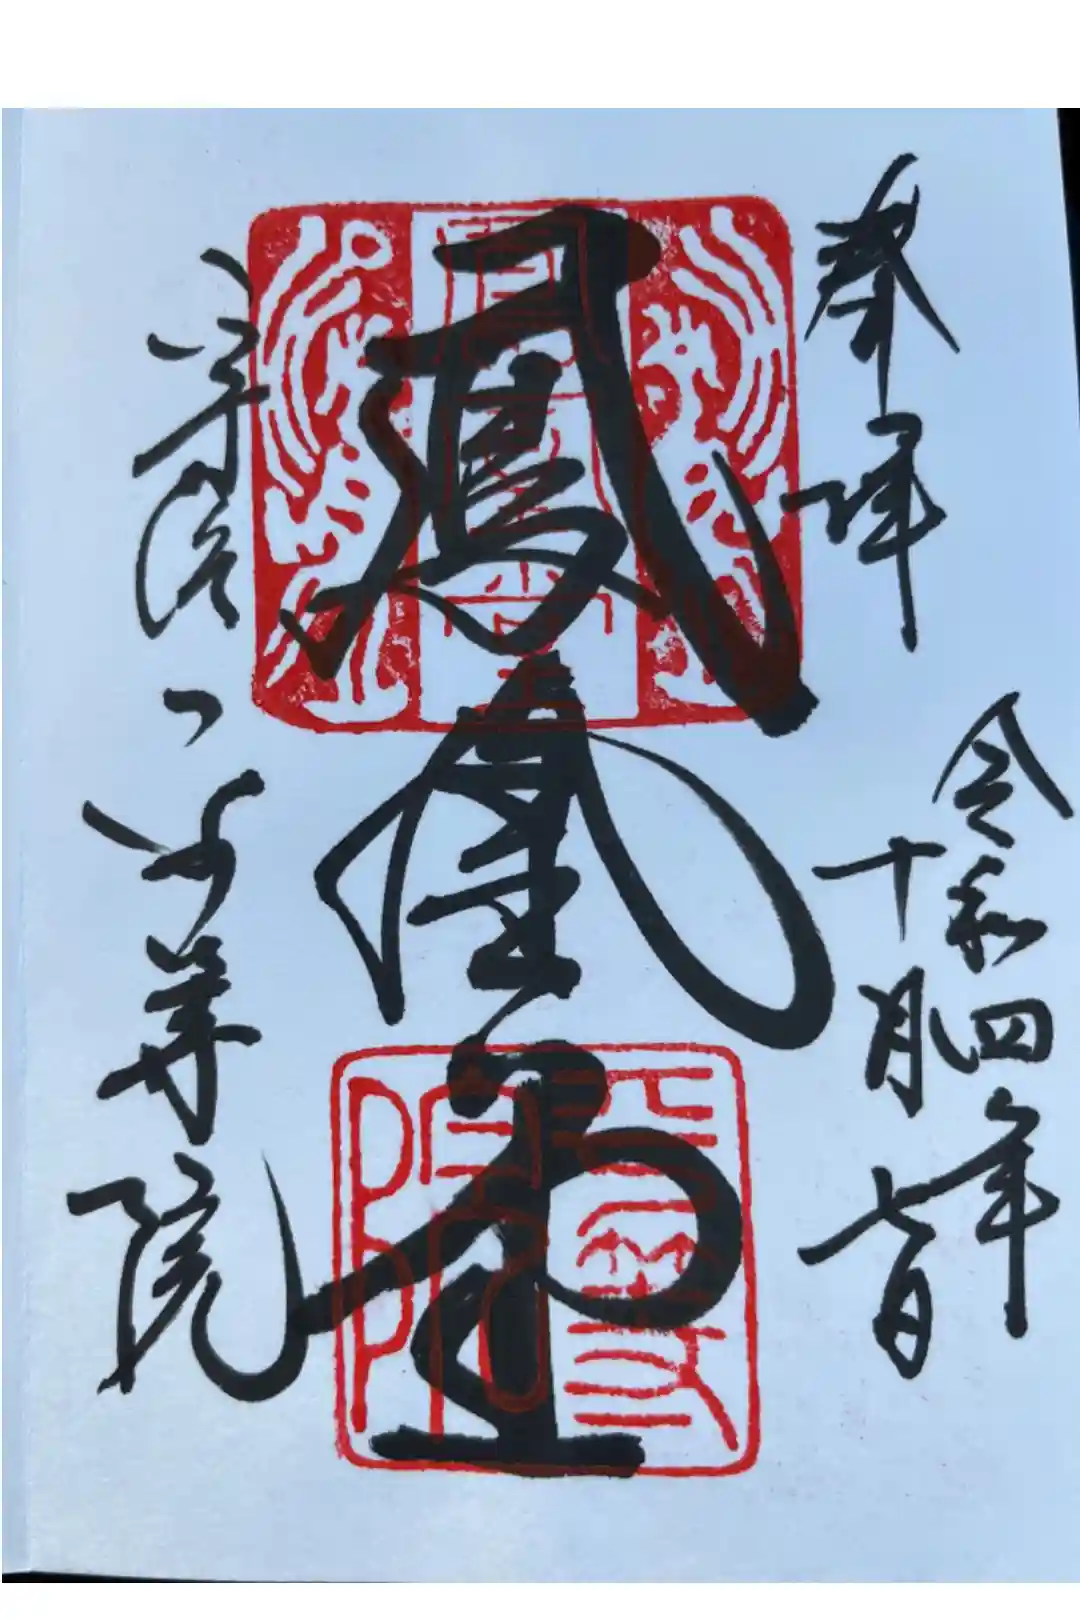 奉拝
令和四年
十月七日
鳳凰堂
宇治
平等院